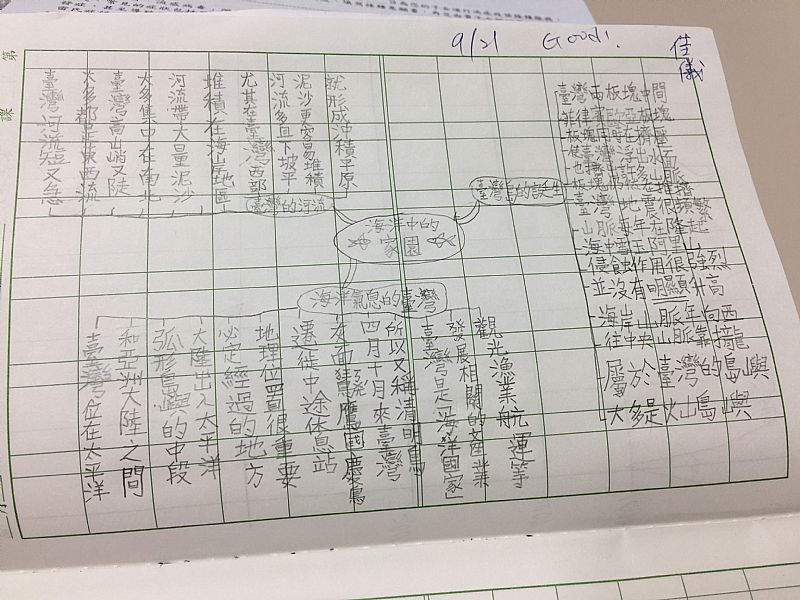 9/21 Good! 佳儀
第 課
海洋中的
家園
臺灣島的誕生
臺灣兩板塊中間
板塊推擠出水面
臺灣地震很頻繁
山脈在隆起
海中雪玉阿里山
侵蝕作用很強烈
並沒有明顯升高
海岸山脈年向西
往中央山脈靠攏
屬於臺灣的島嶼
大多是火山島嶼
臺灣的河流
臺灣河流短又急
大多都是東西流
臺灣高山峭又陡
大多集中在南北
河流帶大量泥沙
堆積在海岸地區
尤其在臺灣西部
河流多且下坡平
泥沙更容易堆積
就形成沖積平原
海洋氣息的臺灣
臺灣位在太平洋
和亞洲大陸之間
弧形島嶼的中段
大陸出入太平洋
必定經過的地方
地理位置很重要
遷徙中途休息站
灰面鵟鷹國慶鳥
四月十月來臺灣
所以又稱清明鳥
臺灣是海洋國家
發展相關的產業
觀光漁業航運等